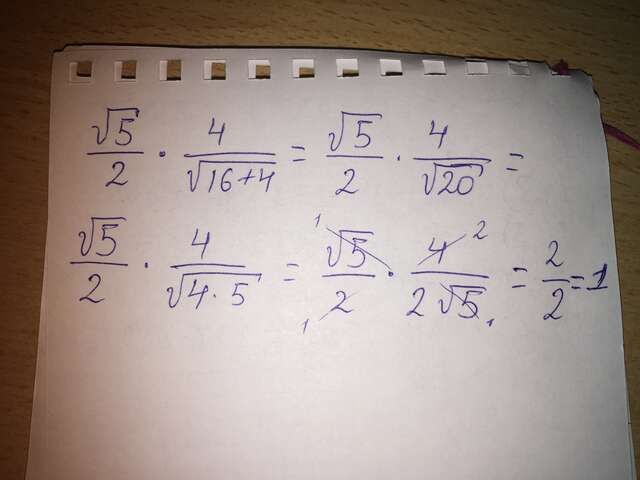 √5/2 · 4/√(16+4) = √5/2 · 4/√20 =
√5/2 · 4/√(4·5) = √5/2 · 4/(2√5) = 2/2 = 1